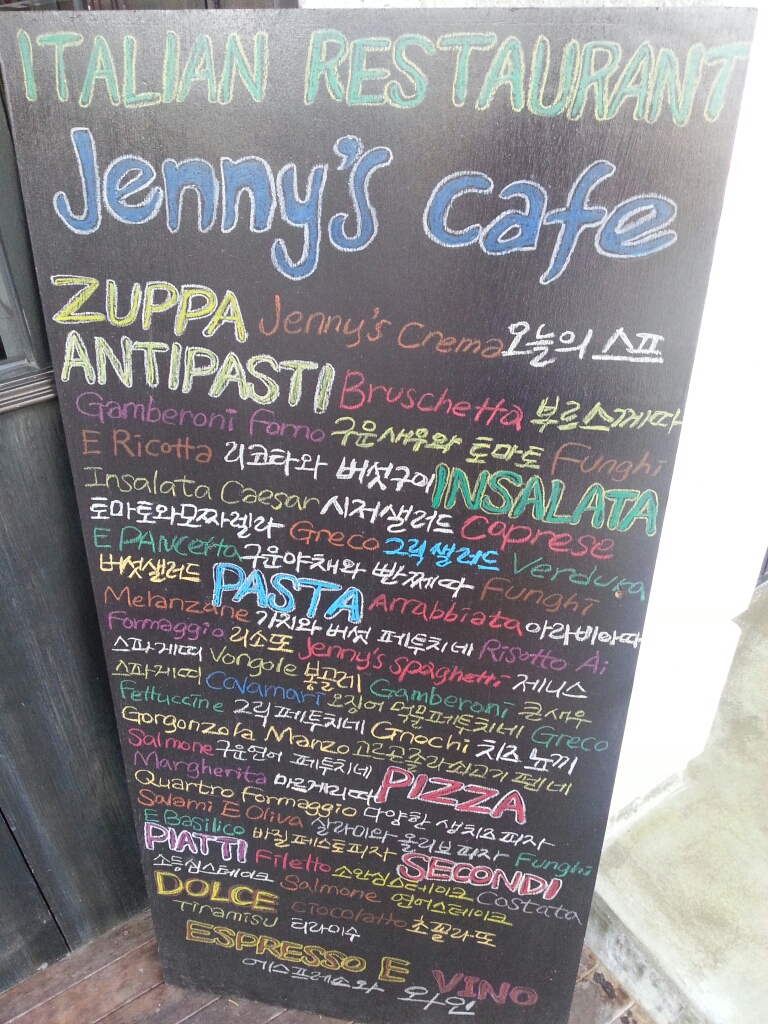 ITALIAN RESTAURANT
Jenny's cafe
ZUPPA Jenny's Crema 오늘의 스프
ANTIPASTI Bruschetta 부르스께따
Gamberoni Forno 구운새우와 토마토 Funghi
E Ricotta 리코타와 버섯구이 INSALATA
Insalata Caesar 시저샐러드 Caprese
토마토와모짜렐라 Greco 그릭샐러드 Verdura
E PANcetta 구운야채와 빤쩨따 Funghi
버섯샐러드 PASTA Arrabbiata 아라비아따
Melanzane 가지와 버섯 페투치네 Risotto Ai
Formaggio 리소또 Jenny's spaghetti 제니스
스파게띠 Vongole 봉골레 Gamberoni 큰새우
스파게띠 Calamari 오징어 먹물페투치네 Greco
Fettuccine 그릭페투치네 Gnochi 치즈 뇨끼
Gorgonzola Manzo 고르곤졸라쇠고기 펜네
Salmone 구운연어 페투치네 PIZZA
Margherita 마르게리따
Quartro formaggio 다양한 생치즈피자
Salami E Oliva 살라미와 올리브 피자 Funghi
E Basilico 바질페스토피자
PIATTI Filetto 소안심스테이크 SECONDI
소등심스테이크 Salmone 연어스테이크 Costata
DOLCE Ciocolatto 초콜라또
Tiramisu 티라미수
ESPRESSO E VINO
에스프레소와 와인